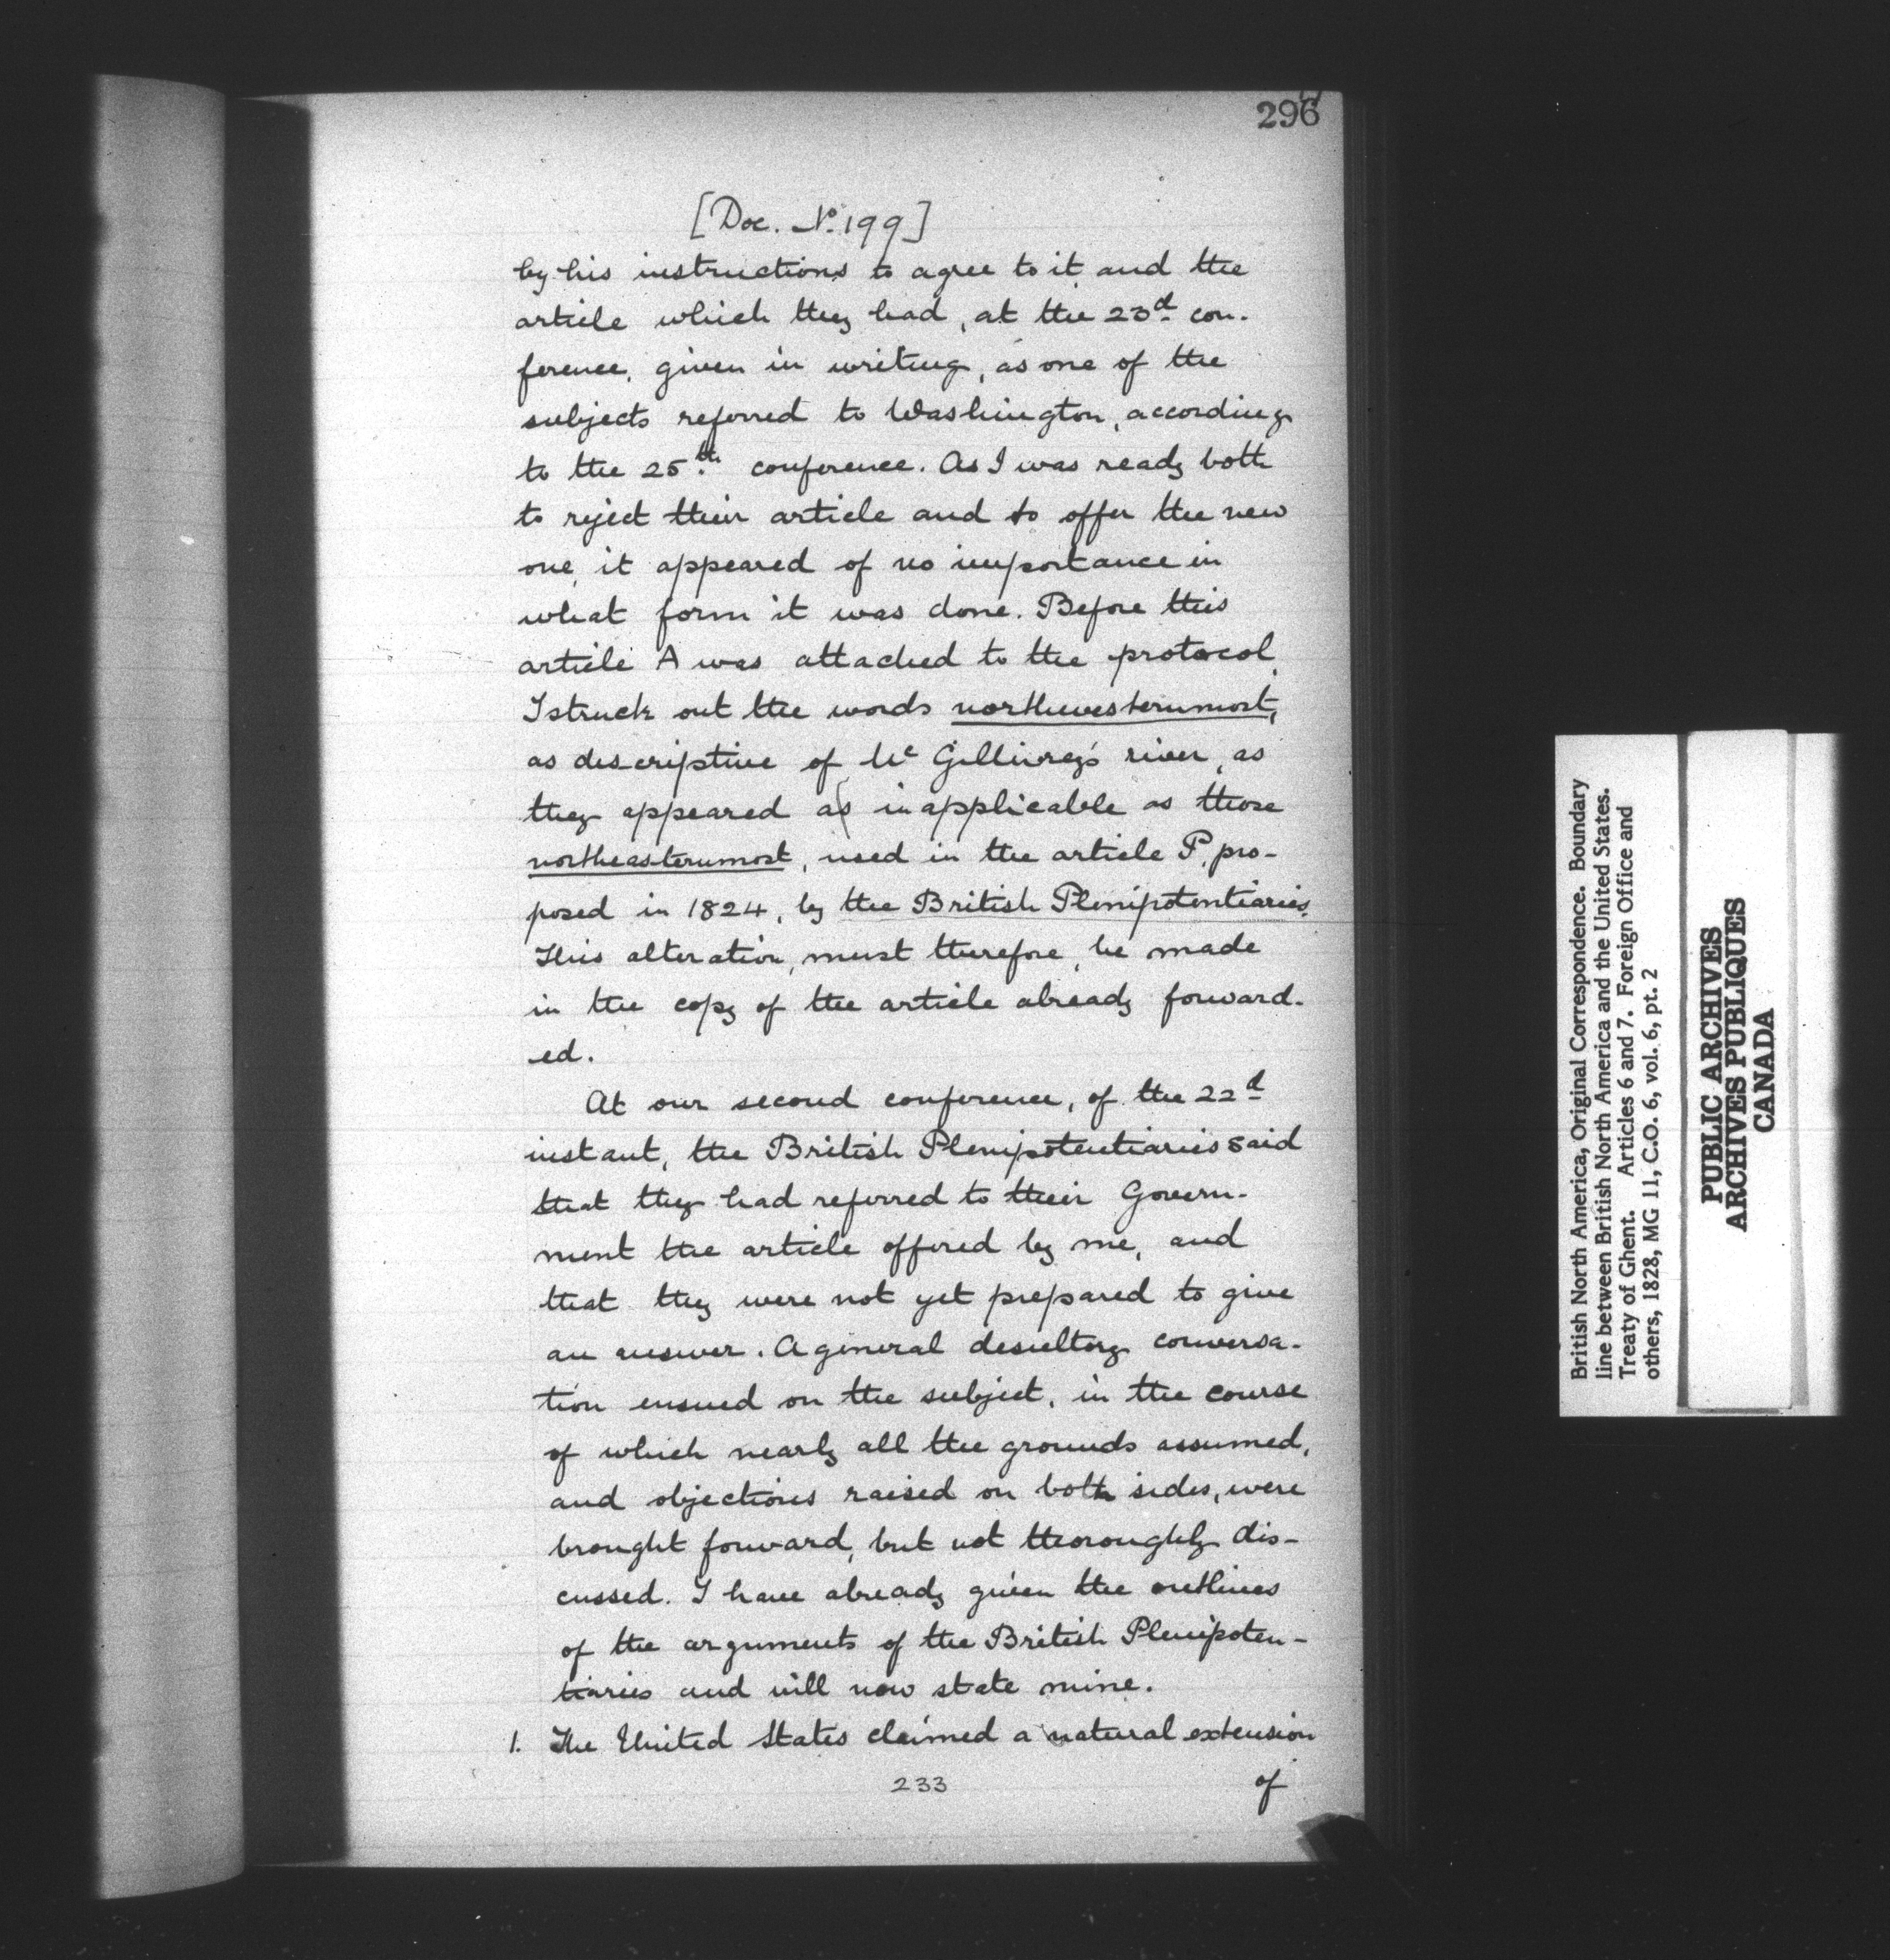 296
[Doc. No. 199]
by his instructions to agree to it, and the
article which they had, at the 23d con-
ference, given in writing, as one of the
subjects referred to Washington, according
to the 25th conference. As I was ready both
to reject their article and to offer the new
one, it appeared of no importance in
what form it was done. Before this
article A was attached to the protocol,
I struck out the words northwesternmost,
as descriptive of Mc Gillivray's river, as
they appeared as inapplicable as those
northeasternmost, used in the article P, pro-
posed in 1824, by the British Plenipotentiaries.
This alteration, must therefore, be made
in the copy of the article already forward-
ed.
At our second conference, of the 22d
instant, the British Plenipotentiaries said
that they had referred to their Govern-
ment the article offered by me, and
that they were not yet prepared to give
an answer. A general desultory conversa-
tion ensued on the subject, in the course
of which nearly all the grounds assumed,
and objections raised on both sides, were
brought forward, but not thoroughly dis-
cussed. I have already given the outlines
of the arguments of the British Plenipoten-
tiaries and will now state mine.
1. The United States claimed a natural extension
233
of
British North America, Original Correspondence. Boundary
line between British North America and the United States.
Treaty of Ghent. Articles 6 and 7. Foreign Office and
others, 1828, MG 11, C.O. 6, vol. 6, pt. 2
PUBLIC ARCHIVES
ARCHIVES PUBLIQUES
CANADA